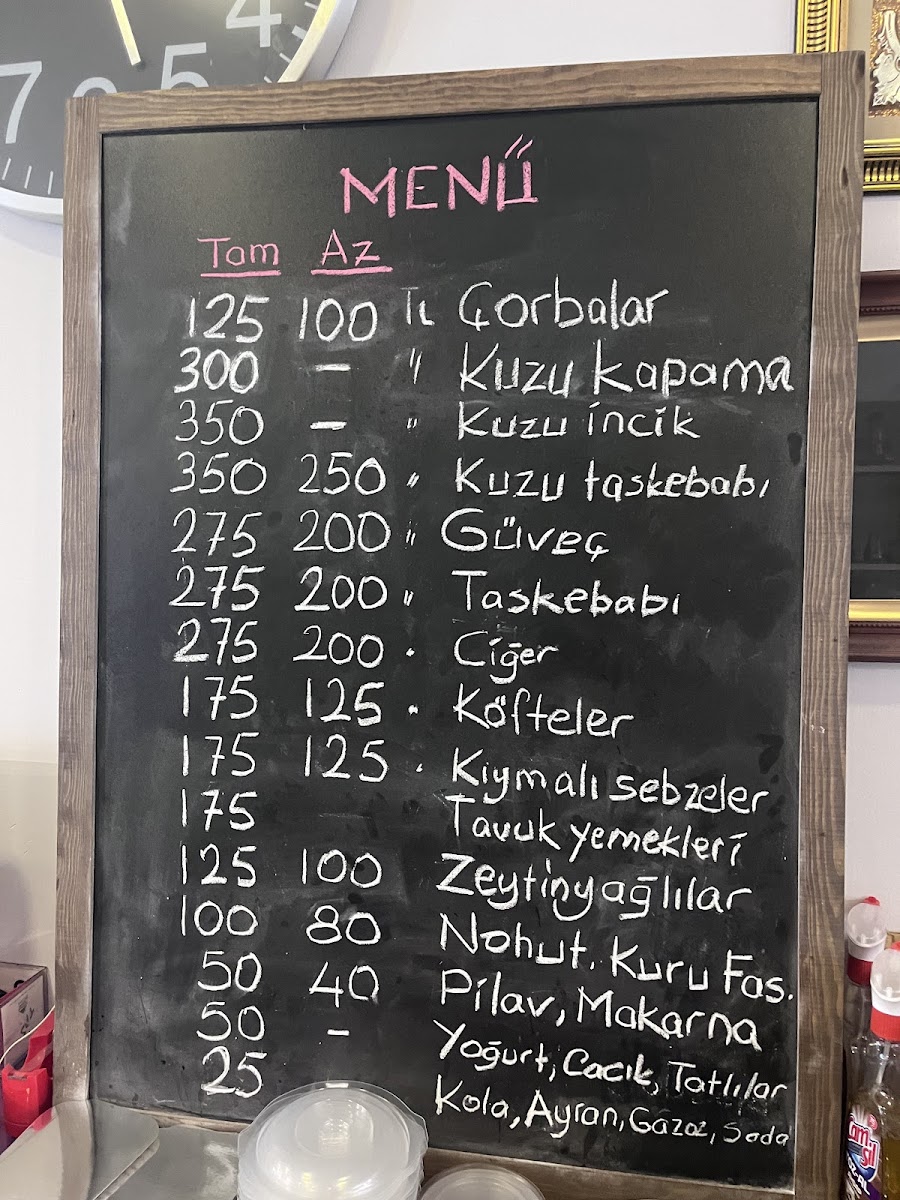 4
5
7
MENÜ
Tam Az
125 100 TL Çorbalar
300 - " Kuzu kapama
350 - " Kuzu incik
350 250 " Kuzu taskebabı
275 200 " Güveç
275 200 " Taskebabı
275 200 " Ciğer
175 125 " Köfteler
175 125 " Kıymalı sebzeler
175 Tavuk yemekleri
125 100 Zeytinyağlılar
100 80 Nohut, Kuru Fas.
50 40 Pilav, Makarna
50 - Yoğurt, Cacık, Tatlılar
25 Kola, Ayran, Gazoz, Soda